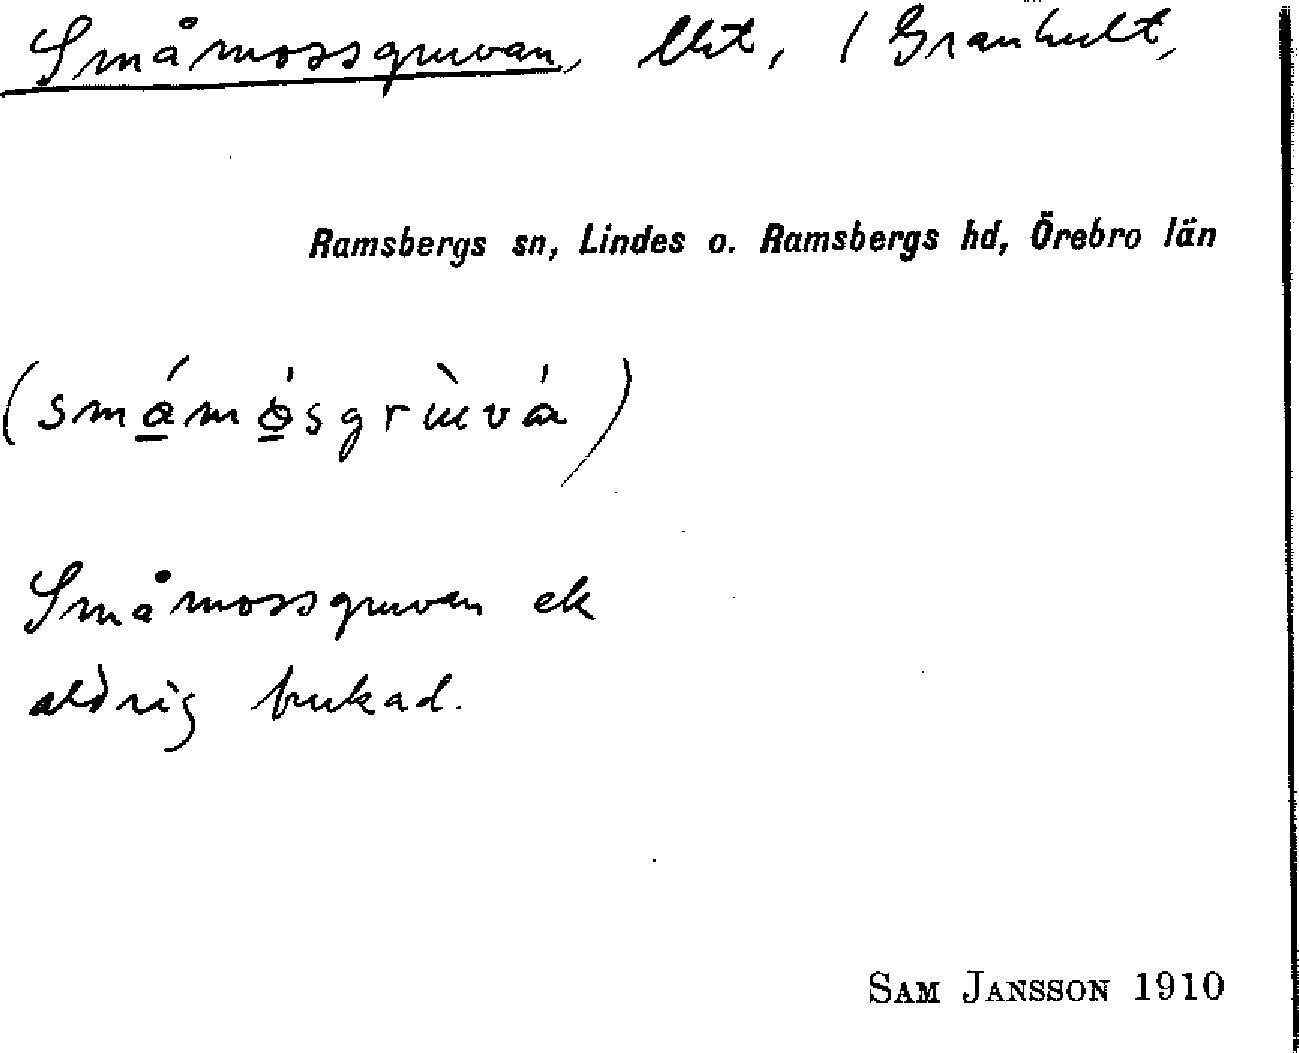 Småmossgruvan, Ukt, / Granhult,
Ramsbergs sn, Lindes o. Ramsbergs hd, Örebro län
(smámósgrùvá)
Småmossgruvan ek
aldrig brukad.
SAM JANSSON 1910